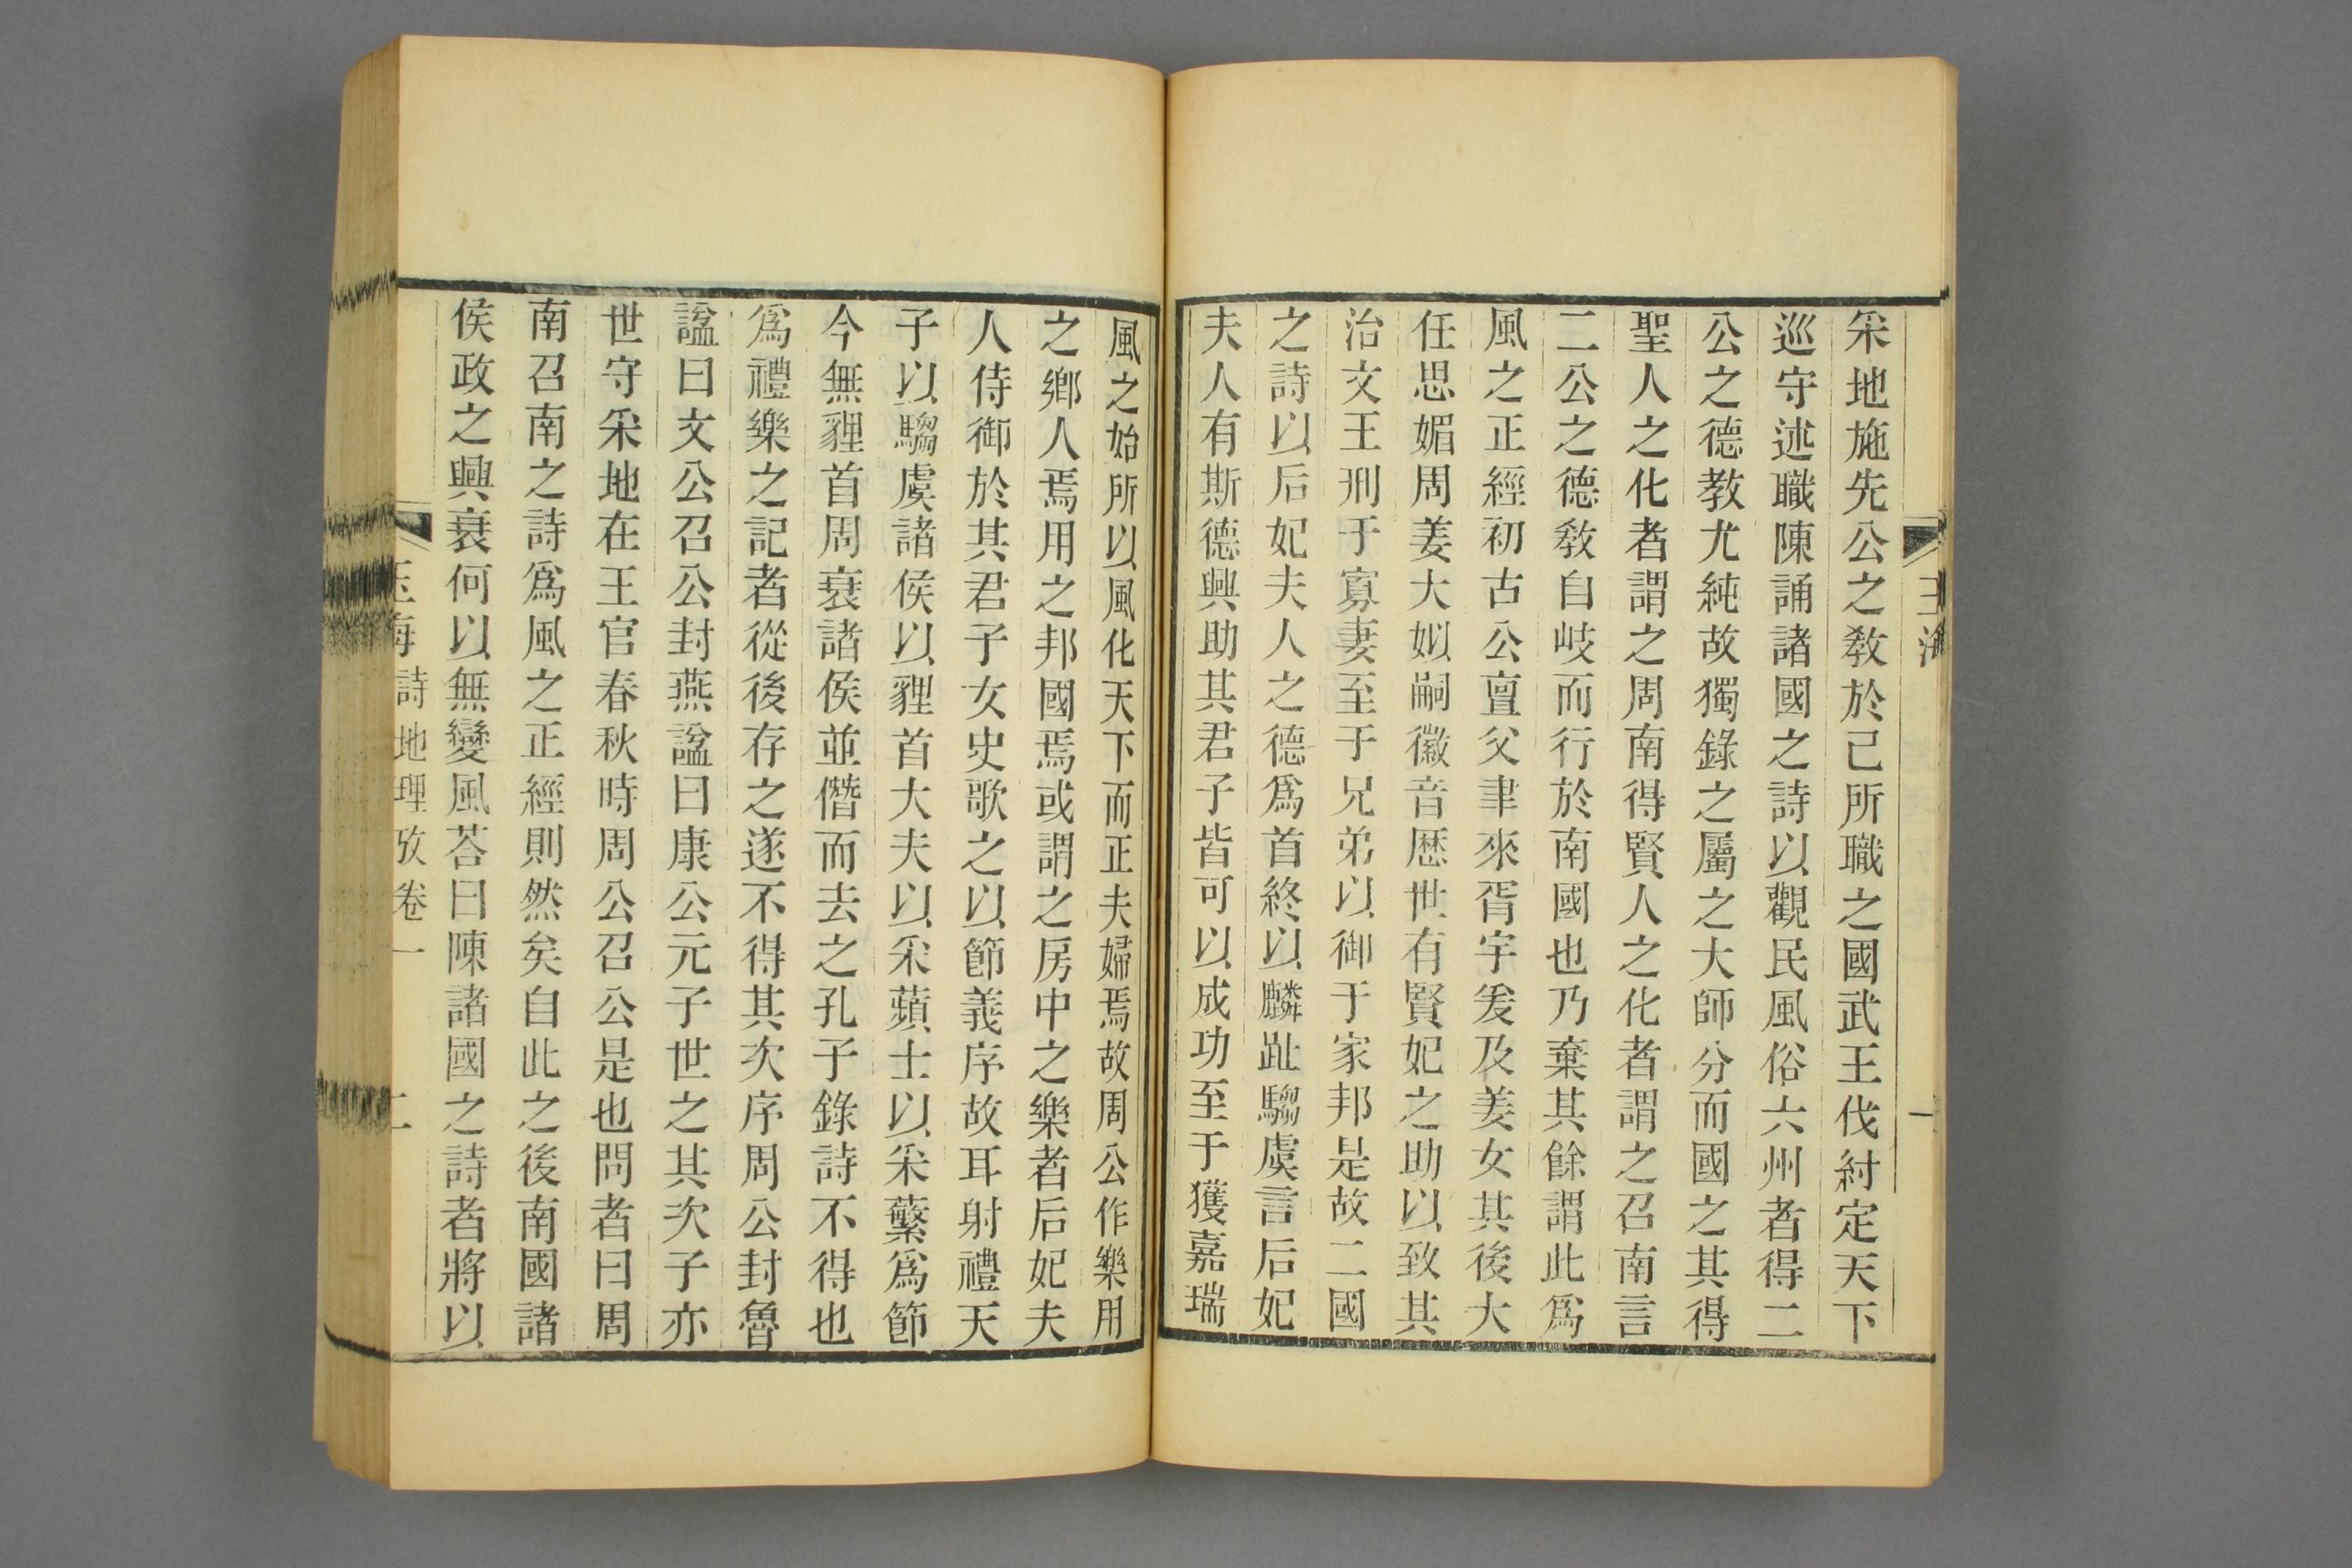 玉海
一
采地施先公之敎於己所職之國武王伐紂定天下
巡守述職陳誦諸國之詩以觀民風俗六州者得二
公之德教尤純故獨錄之屬之大師分而國之其得
聖人之化者謂之周南得賢人之化者謂之召南言
二公之德敎自岐而行於南國也乃棄其餘謂此爲
風之正經初古公亶父聿來胥宇爰及姜女其後大
任思媚周姜大姒嗣徽音歷世有賢妃之助以致其
治文王刑于寡妻至于兄弟以御于家邦是故二國
之詩以后妃夫人之德爲首終以麟趾騶虞言后妃
夫人有斯德興助其君子皆可以成功至于獲嘉瑞
風之始所以風化天下而正夫婦焉故周公作樂用
之鄉人焉用之邦國焉或謂之房中之樂者后妃夫
人侍御於其君子女史歌之以節義序故耳射禮天
子以騶虞諸侯以貍首大夫以采蘋士以采蘩爲節
今無貍首周衰諸侯並僭而去之孔子錄詩不得也
爲禮樂之記者從後存之遂不得其次序周公封魯
諡曰文公召公封燕諡曰康公元子世之其次子亦
世守采地在王官春秋時周公召公是也問者曰周
南召南之詩爲風之正經則然矣自此之後南國諸
侯政之興衰何以無變風荅曰陳諸國之詩者將以
玉海 詩地理攷卷一 二